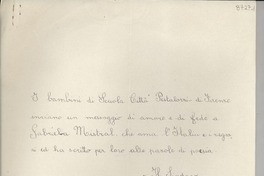 I bambini di Scuola Città Pestalozzi di Firenze
inviano un messaggio di amore e di fede a
Gabriela Mistral che ama l'Italia e
ed ha scritto per loro alte parole di poesia